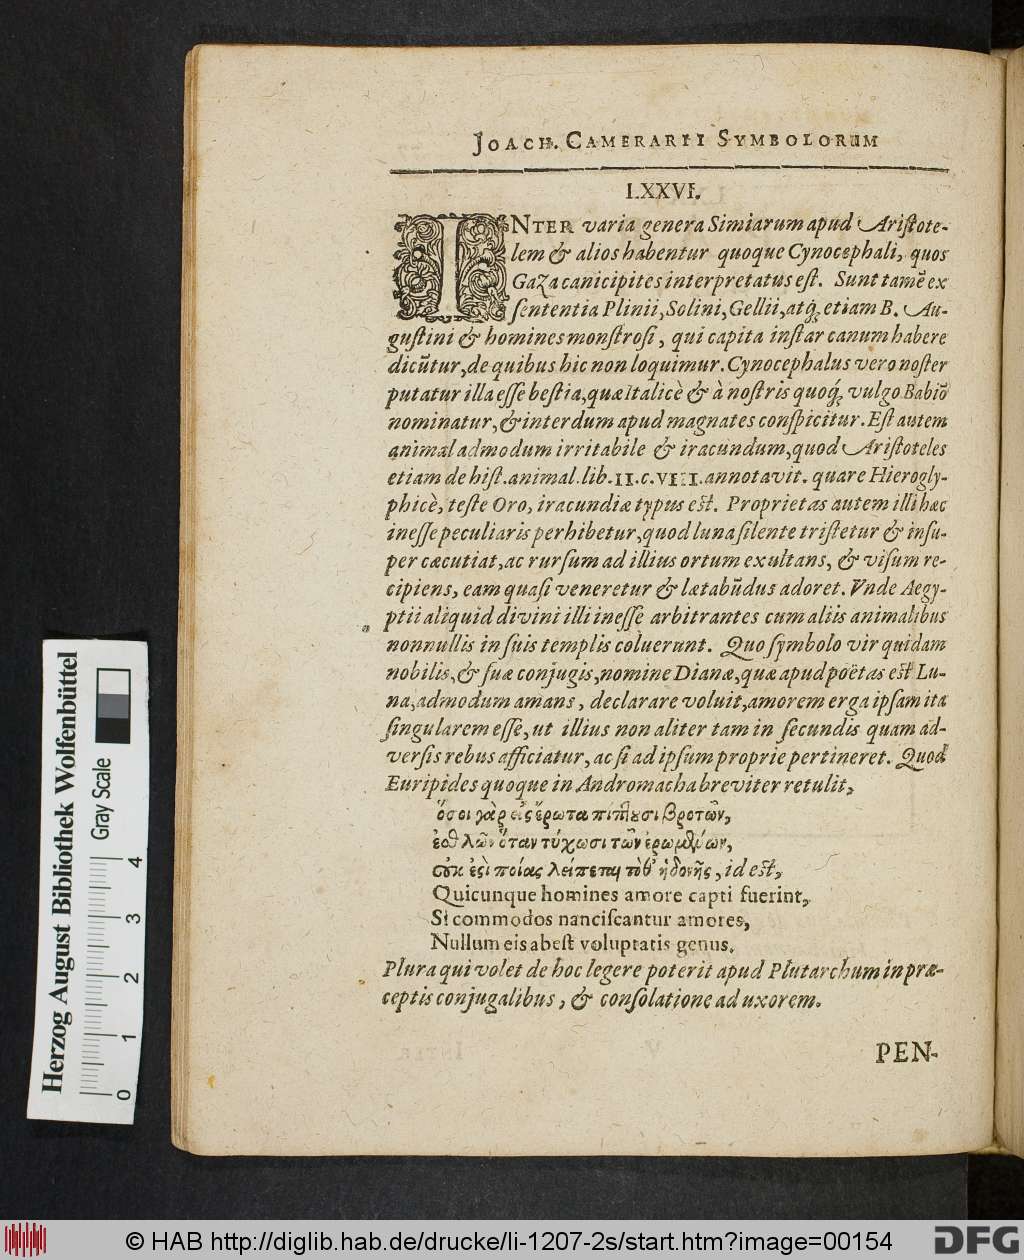 JOACH. CAMERARII SYMBOLORUM
LXXVI.
INTER varia genera Simiarum apud Aristote-
lem & alios habentur quoque Cynocephali, quos
Gaza canicipites interpretatus est. Sunt tamẽ ex
sententia Plinii, Solini, Gellii, atq; etiam B. Au-
gustini & homines monstrosi, qui capita instar canum habere
dicũtur, de quibus hic non loquimur. Cynocephalus vero noster
putatur illa esse bestia, quæ Italicè & à nostris quoq; vulgo Babiõ
nominatur, & interdum apud magnates conspicitur. Est autem
animal admodum irritabile & iracundum, quod Aristoteles
etiam de hist. animal. lib. II. c. VIII. annotavit. quare Hierogly-
phicè, teste Oro, iracundiæ typus est. Proprietas autem illi hæc
inesse peculiaris perhibetur, quod luna silente tristetur & insu-
per cæcutiat, ac rursum ad illius ortum exultans, & visum re-
cipiens, eam quasi veneretur & lætabũdus adoret. Vnde Aegy-
ptii aliquid divini illi inesse arbitrantes cum aliis animalibus
nonnullis in suis templis coluerunt. Quo symbolo vir quidam
nobilis, & suæ conjugis, nomine Dianæ, quæ apud poëtas est Lu-
na, admodum amans, declarare voluit, amorem erga ipsam ita
singularem esse, ut illius non aliter tam in secundis quam ad-
versis rebus afficiatur, ac si ad ipsum proprie pertineret. Quod
Euripides quoque in Andromacha breviter retulit,
ὅσοι γὰρ εἰς ἔρωτα πίπτουσι βροτῶν,
ἐσθλῶν ὅταν τύχωσι τῶν ἐρωμένων,
οὐκ ἐστὶ ποίας λείπεται τόθ' ἡδονῆς, id est,
Quicunque homines amore capti fuerint,
Si commodos nanciscantur amores,
Nullum eis abest voluptatis genus.
Plura qui volet de hoc legere poterit apud Plutarchum in præ-
ceptis conjugalibus, & consolatione ad uxorem.
PEN-
Herzog August Bibliothek Wolfenbüttel
Gray Scale
0 1 2 3 4
© HAB http://diglib.hab.de/drucke/li-1207-2s/start.htm?image=00154
DFG